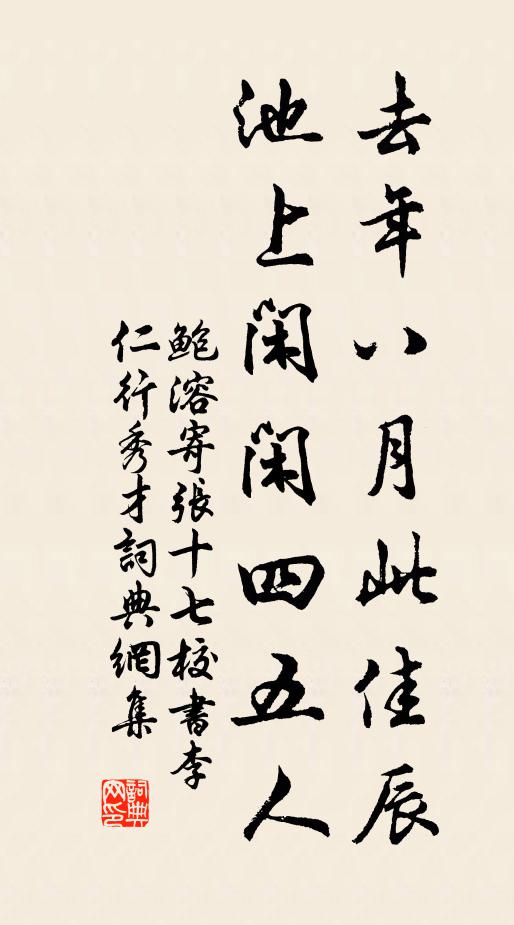 去年八月此佳辰
池上閑閑四五人
鲍溶寄張十七校書李
仁行秀才詞典網集
詞典
网印